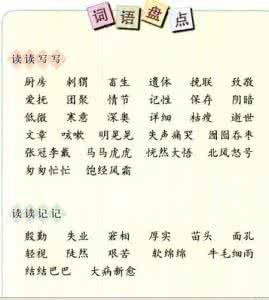 词语盘点
读读写写
厨房 刺猬 畜生 遗体 挽联 致敬
爱抚 团聚 情节 记性 保存 阴暗
低微 寒意 深奥 详细 枯瘦 逝世
文章 咳嗽 明晃晃 失声痛哭 囫囵吞枣
张冠李戴 马马虎虎 恍然大悟 北风怒号
匆匆忙忙 饱经风霜
读读记记
殷勤 失业 窘相 厚实 苗头 面孔
轻视 陡然 艰苦 软绵绵 牛毛细雨
结结巴巴 大病新愈